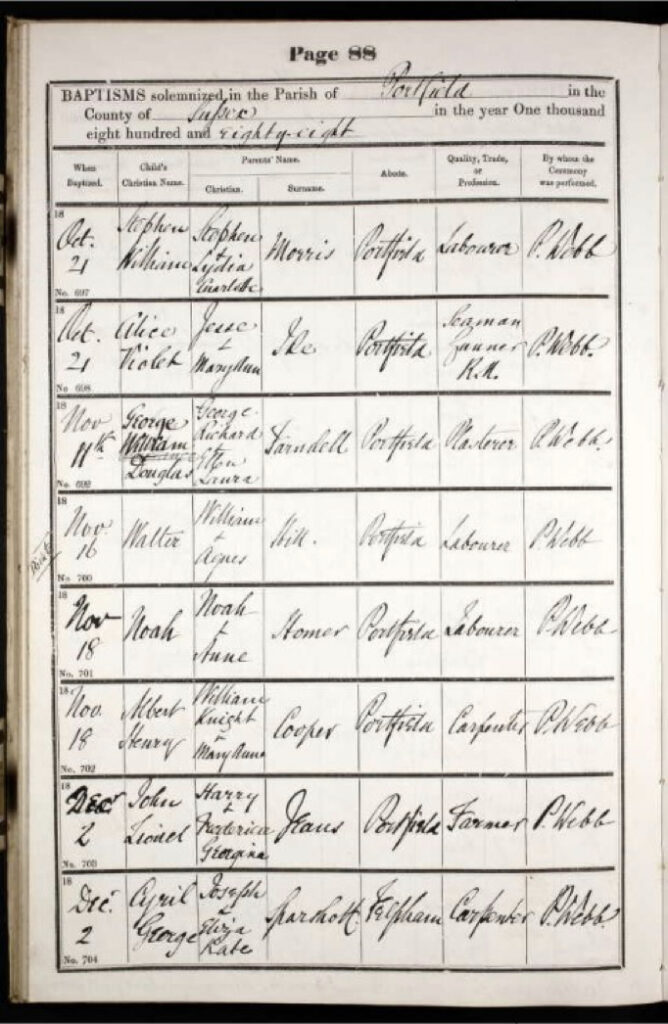 Page 88
BAPTISMS solemnized in the Parish of Portfield in the
County of Sussex in the year One thousand
eight hundred and Eighty-eight
When Baptized. Child's Christian Name. Parents' Name. Christian. Surname. Abode. Quality, Trade, or Profession. By whom the Ceremony was performed.
18 Oct. 21 No. 697 Stephen William Stephen & Lydia Charlotte Morris Portfield Labourer P. Webb
18 Oct. 21 No 698 Alice Violet Jesse & Mary Ann Ide Portfield Seaman Gunner R.N. P. Webb.
18 Nov 11th No. 699 George William Douglas George Richard Ellen Laura Farndell Portfield Plasterer P. Webb.
Private
18 Nov. 16 No. 700 Walter William & Agnes Hill. Portfield Labourer P. Webb
18 Nov 18 No. 701 Noah Noah & Anne Homer Portfield Labourer P. Webb.
18 Nov. 18 No. 702 Albert Henry William Knight & Mary Anne Cooper Portfield Carpenter P. Webb
18 Decr 2 No. 703 John Lionel Harry & Frederica Georgina Jeans Portfield Farmer P. Webb
18 Dec. 2 No. 704 Cyril George Joseph & Eliza Kate Sparshott. Felpham Carpenter P. Webb.